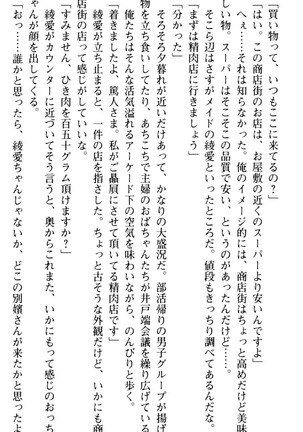 「買い物って、いつもここに来てるの?」
「はい。この商店街のお店は、お屋敷の近くのスーパーより安いんですよ」
「へえ……それは知らなかった。俺のイメージ的には、商店街はちょっと高めだけど美味
しい物。スーパーはそこそこの品質で安い、というのがあったんだけど……。
そこら辺はさすがメイドの綾愛といったところだ。値段もきっちり調べてあるんだな。
「まずは精肉店に行きましょう」
「分かった」
そろそろ夕暮れが近いだけあって、かなりの大盛況だ。部活帰りの男子グループが揚げ
物を立ち食いしてたり、あちこちで主婦のおばちゃんたちが井戸端会議を繰り広げている
俺たちはそんな活気溢れるアーケード下の空気を味わいながら、のんびりと歩く。
「着きましたよ、篤人さま。私がご贔屓にさせて頂いてる精肉店です」
綾愛は立ち止まると、一件の店を指さした。ちょっと古そうな外観だけど、いかにも商
店街の店って感じがしていいな。
「すみません、ひき肉を百五十グラム頂けますか?」
綾愛がカウンターに近づいてそう言うと、奥からこれまた、いかにもって感じのおっち
ゃんが顔を出してくる。
「おっ……誰かと思ったら、綾愛ちゃんじゃないか、どこの別嬪さんが来たかと思ったよ